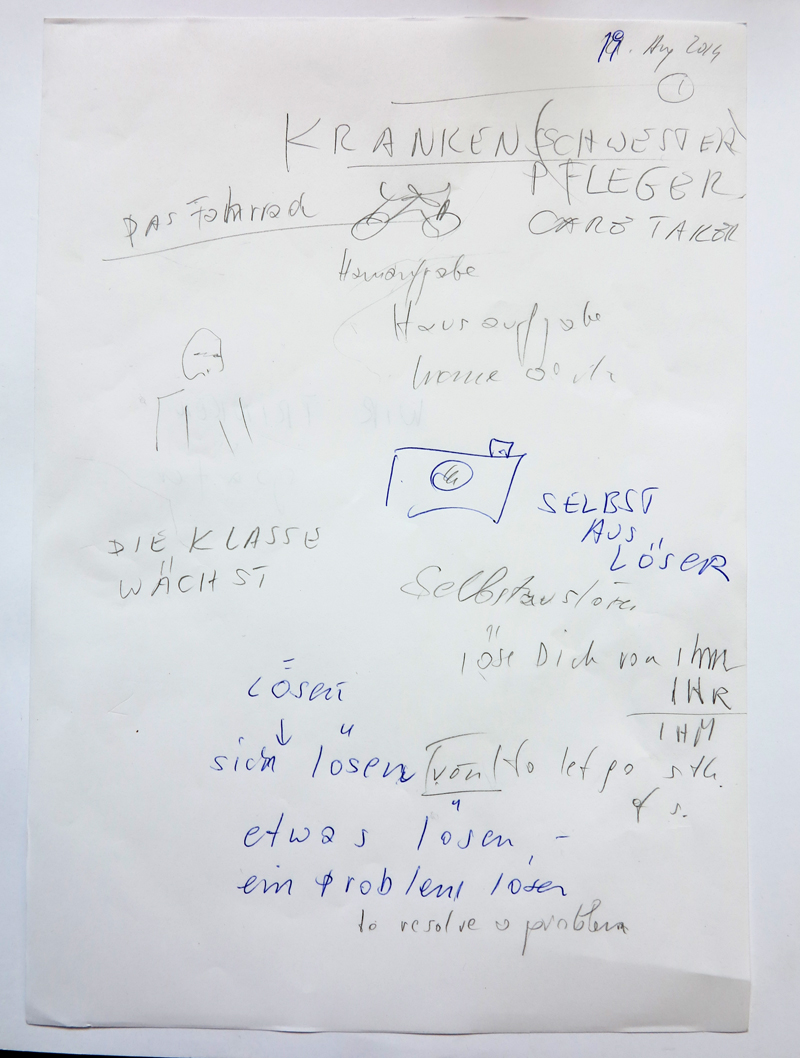 19. Aug 2014
1
KRANKEN(SCHWESTER)
PFLEGER
CARE TAKER
DAS Fahrrad
Hausaufgabe
Hausaufgabe
home
SELBST
AUS
LÖSER
DIE KLASSE
WÄCHST
Selbstauslöser
löse Dich von ihm
IHR
IHM
Lösen
sich lösen (von) to let go sth.
of s.
etwas lösen, -
ein Problem lösen
to resolve a problem